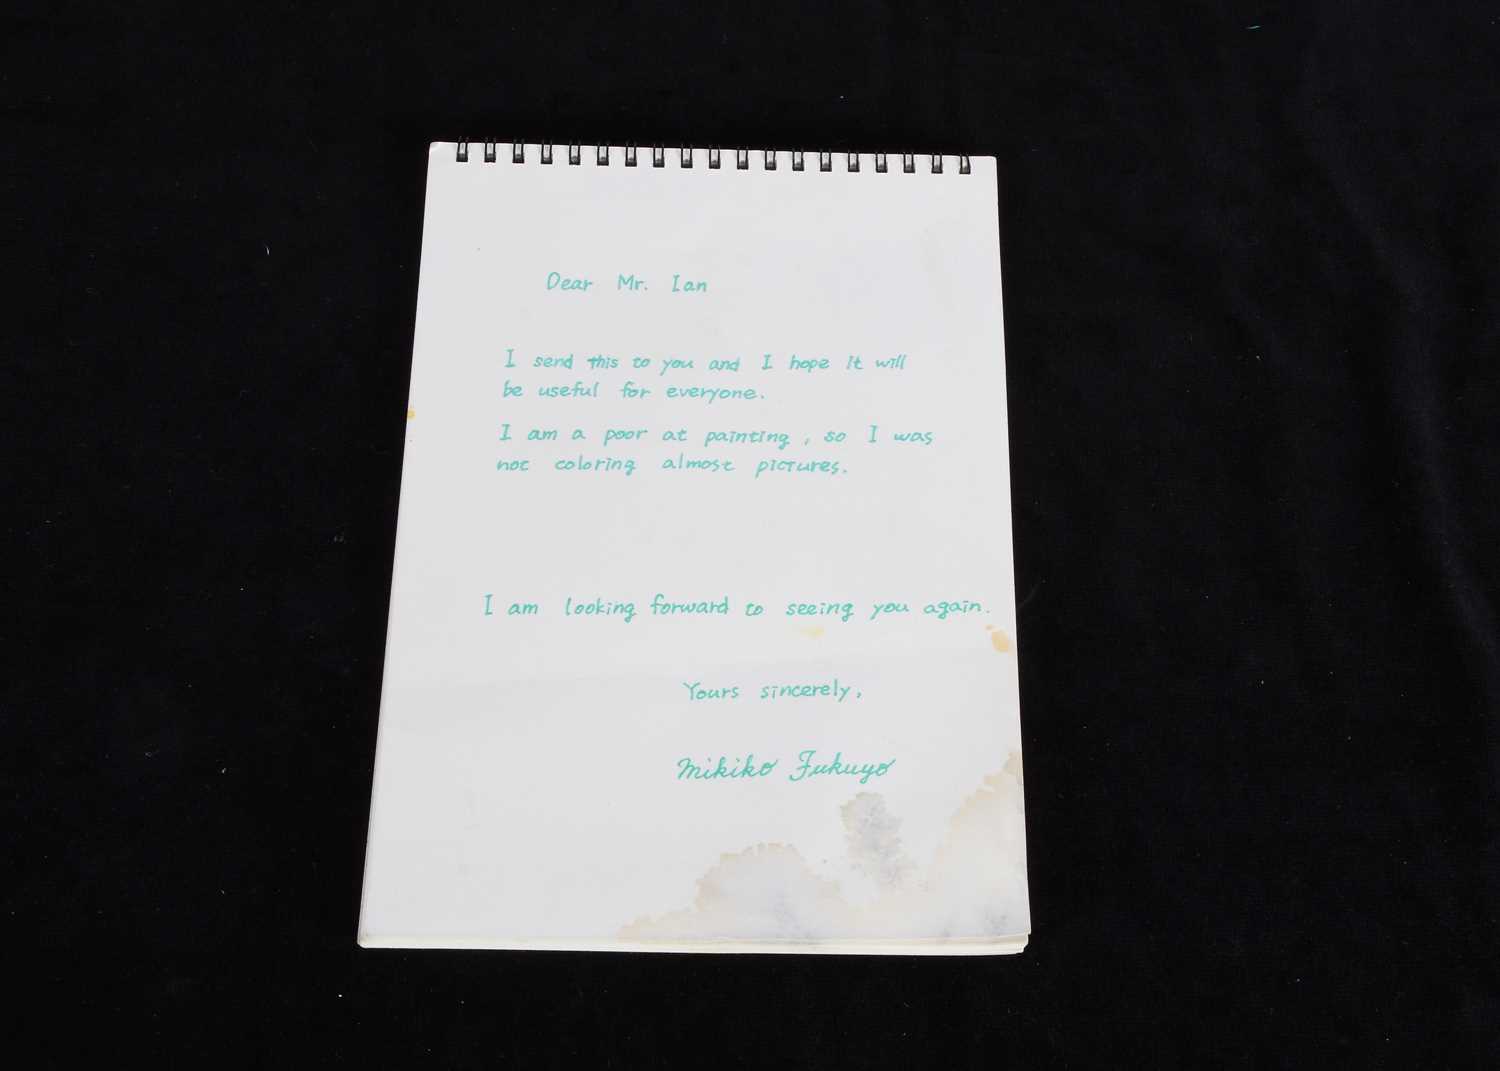 Dear Mr. Ian
I send this to you and I hope it will
be useful for everyone.
I am a poor at painting, so I was
not coloring almost pictures.
I am looking forward to seeing you again.
Yours sincerely,
Mikiko Fukuyo